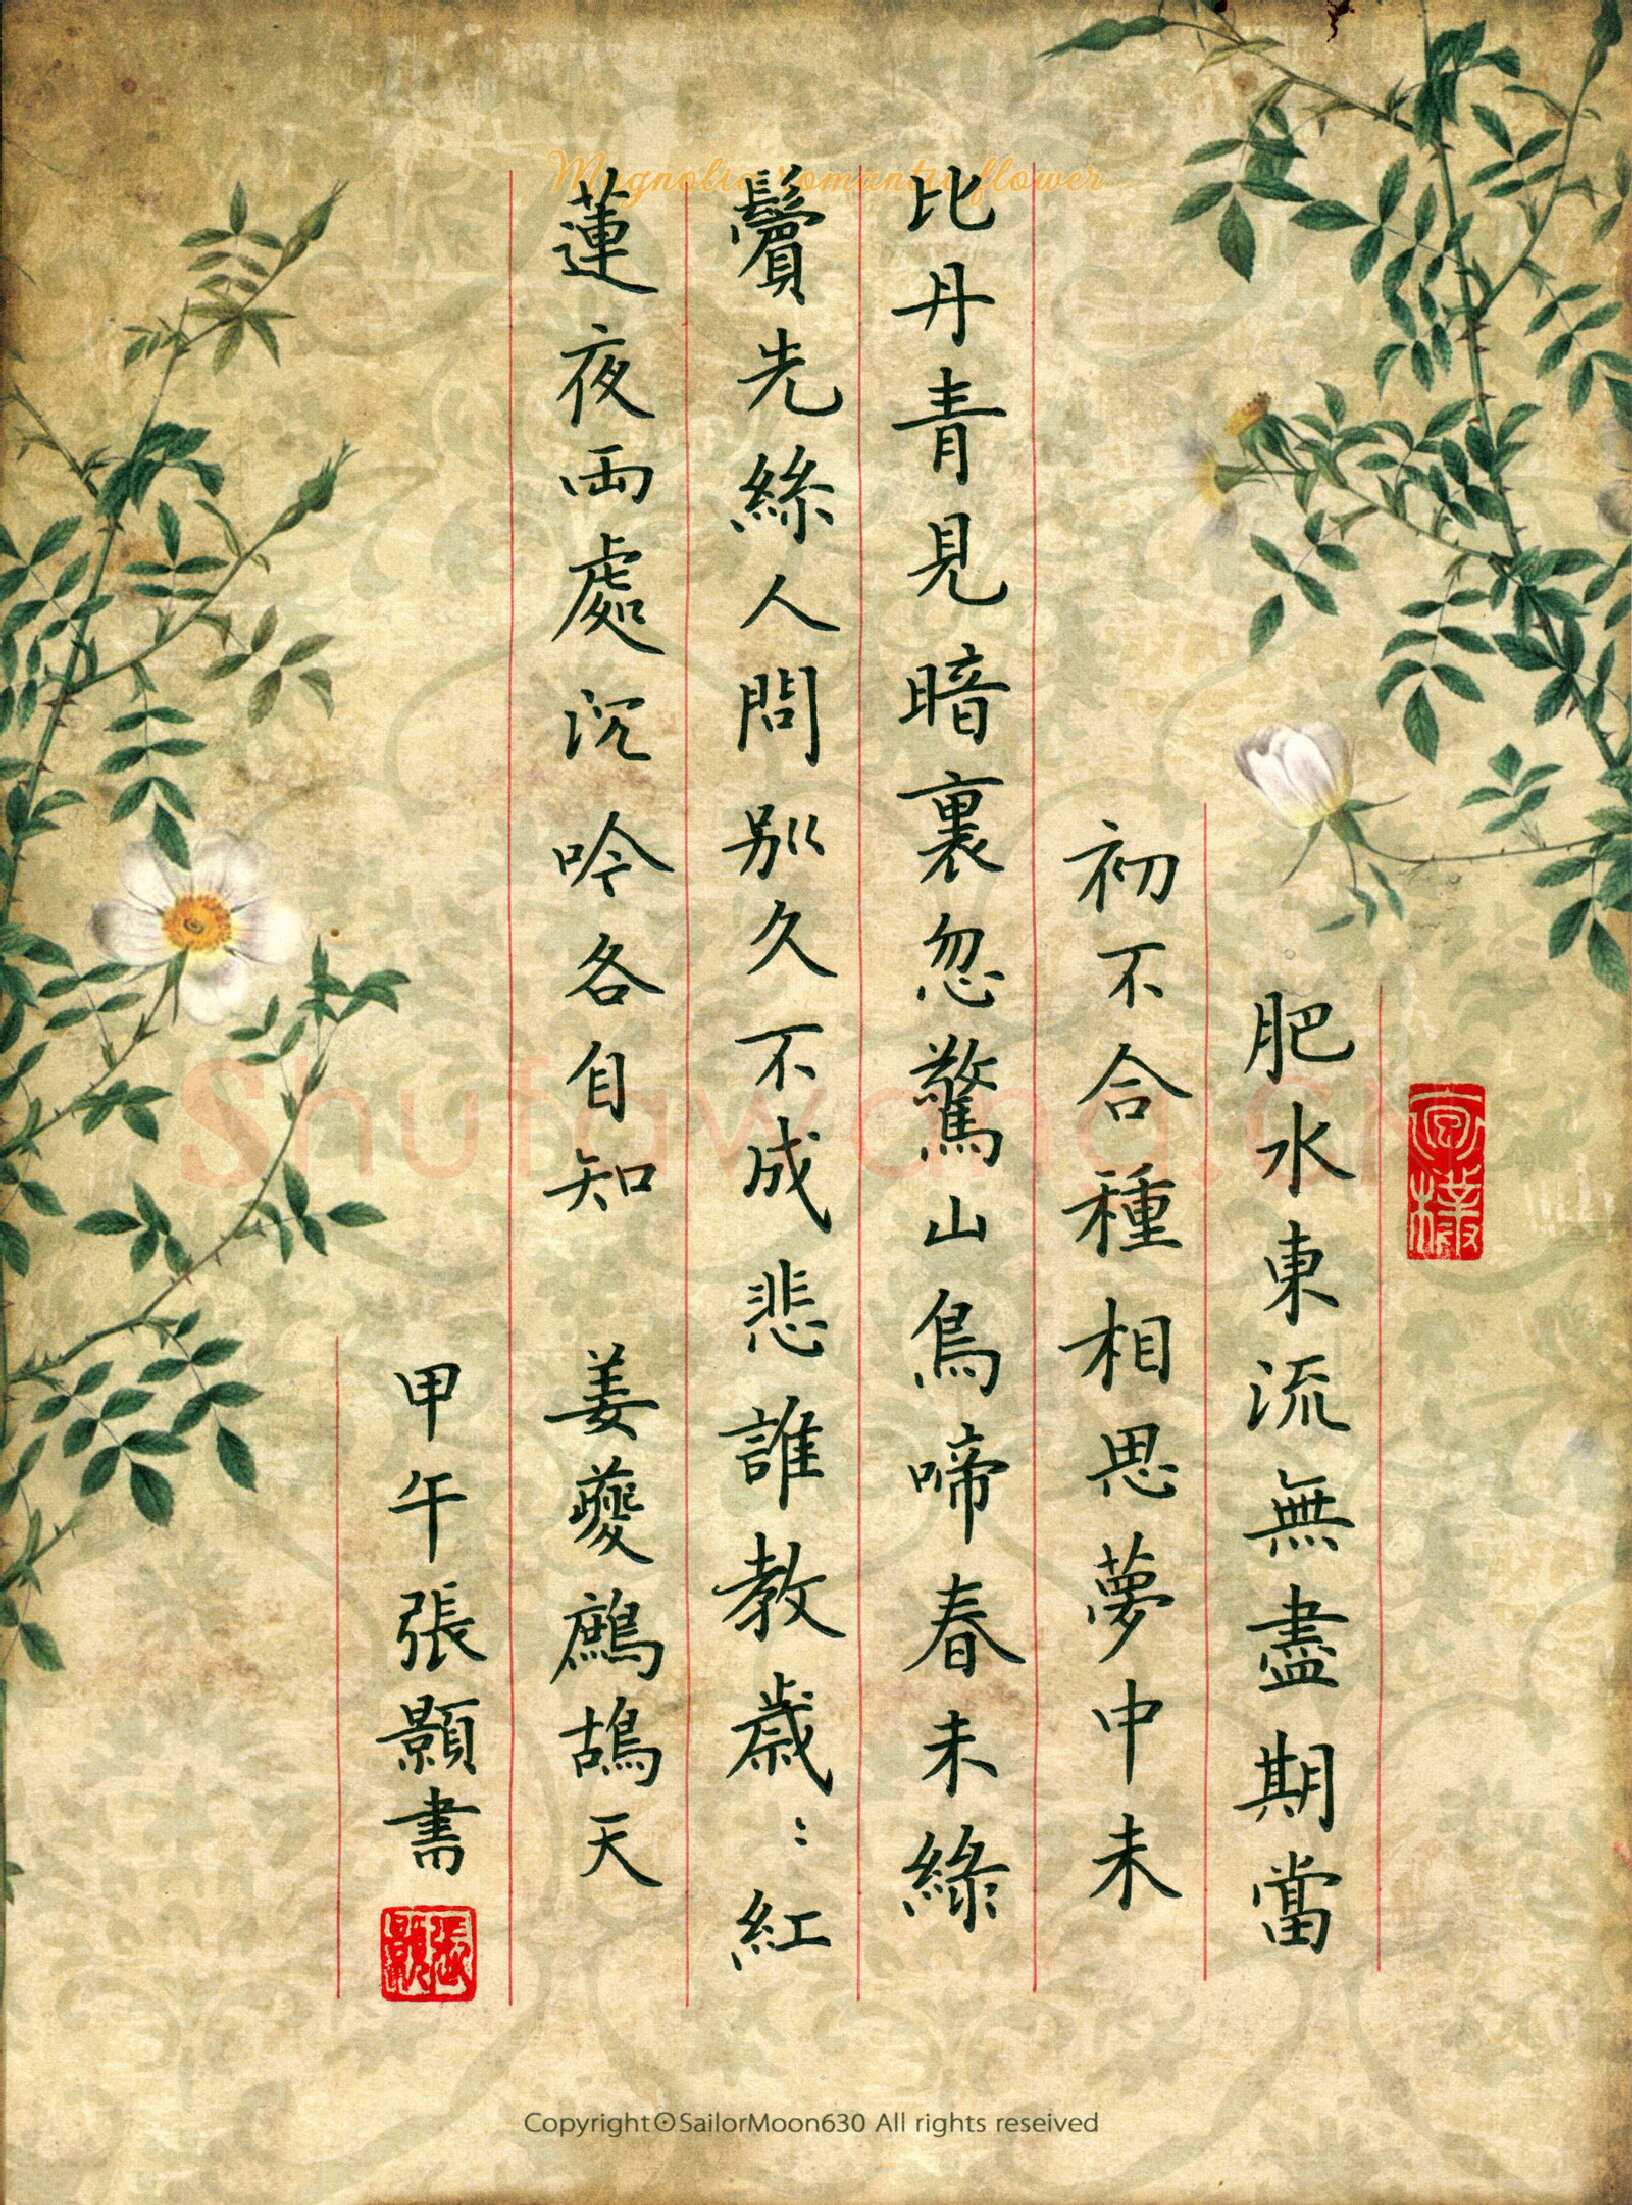 肥水東流無盡期當
初不合種相思夢中未
比丹青見暗裏忽驚山鳥啼春未綠
鬢先絲人間別久不成悲誰教歲:紅
蓮夜兩處沉吟各自知 姜夔鷓鴣天
甲午張顥書
張顥
Magnolia romantic flower
Shufawang.CN
Copyright⊙SailorMoon630 All rights reseived